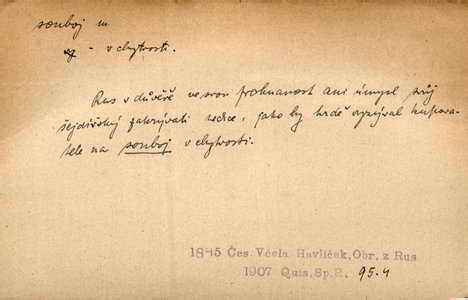 souboj m.
- v chytrosti.
Rus v důvěře ve svou prohnanost ani úmysl svůj
šejdířský zakrývati nechce, jako by hrdě vyzýval kupova-
tele na souboj v chytrosti.
1845 Čes. Včela, Havlíček, Obr. z Rus
1907 Quis, Sp. 2. 95.4